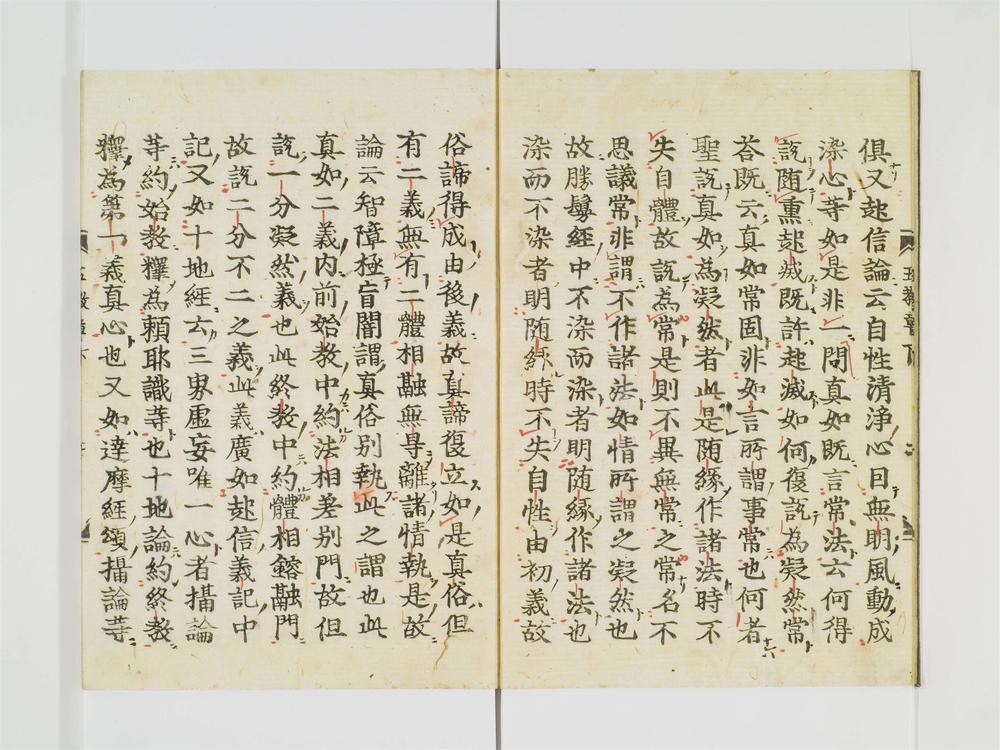 俱又起信論云自性清淨心因無明風動成
染心等如是非一問真如既言常法云何得
說隨熏起滅既許起滅如何復說為凝然常
荅既云真如常固非如言所謂事常也何者
聖說真如為凝然者此是随緣作諸法時不
失自體故說為常是則不異無常之常名不
思議常非謂不作諸法如情所謂之凝然也
故勝鬘經中不染而染者明随緣作諸法也
染而不染者明随緣時不失自性由初義故
俗諦得成由後義故真諦復立如是真俗但
有二義無有二體相融無㝵離諸情執是故
論云智障極盲闇謂真俗别執此之謂也此
真如二義内前始教中約法相差别門故但
說一分凝然義也此終教中約體相鎔融門
故說二分不二之義此義廣如起信義記中
記又如十地經云三界虛妄唯一心者攝論
等約始教釋為頼耶識等也十地論約終教
釋為第一義真心也又如達摩經頌攝論等
五教章下